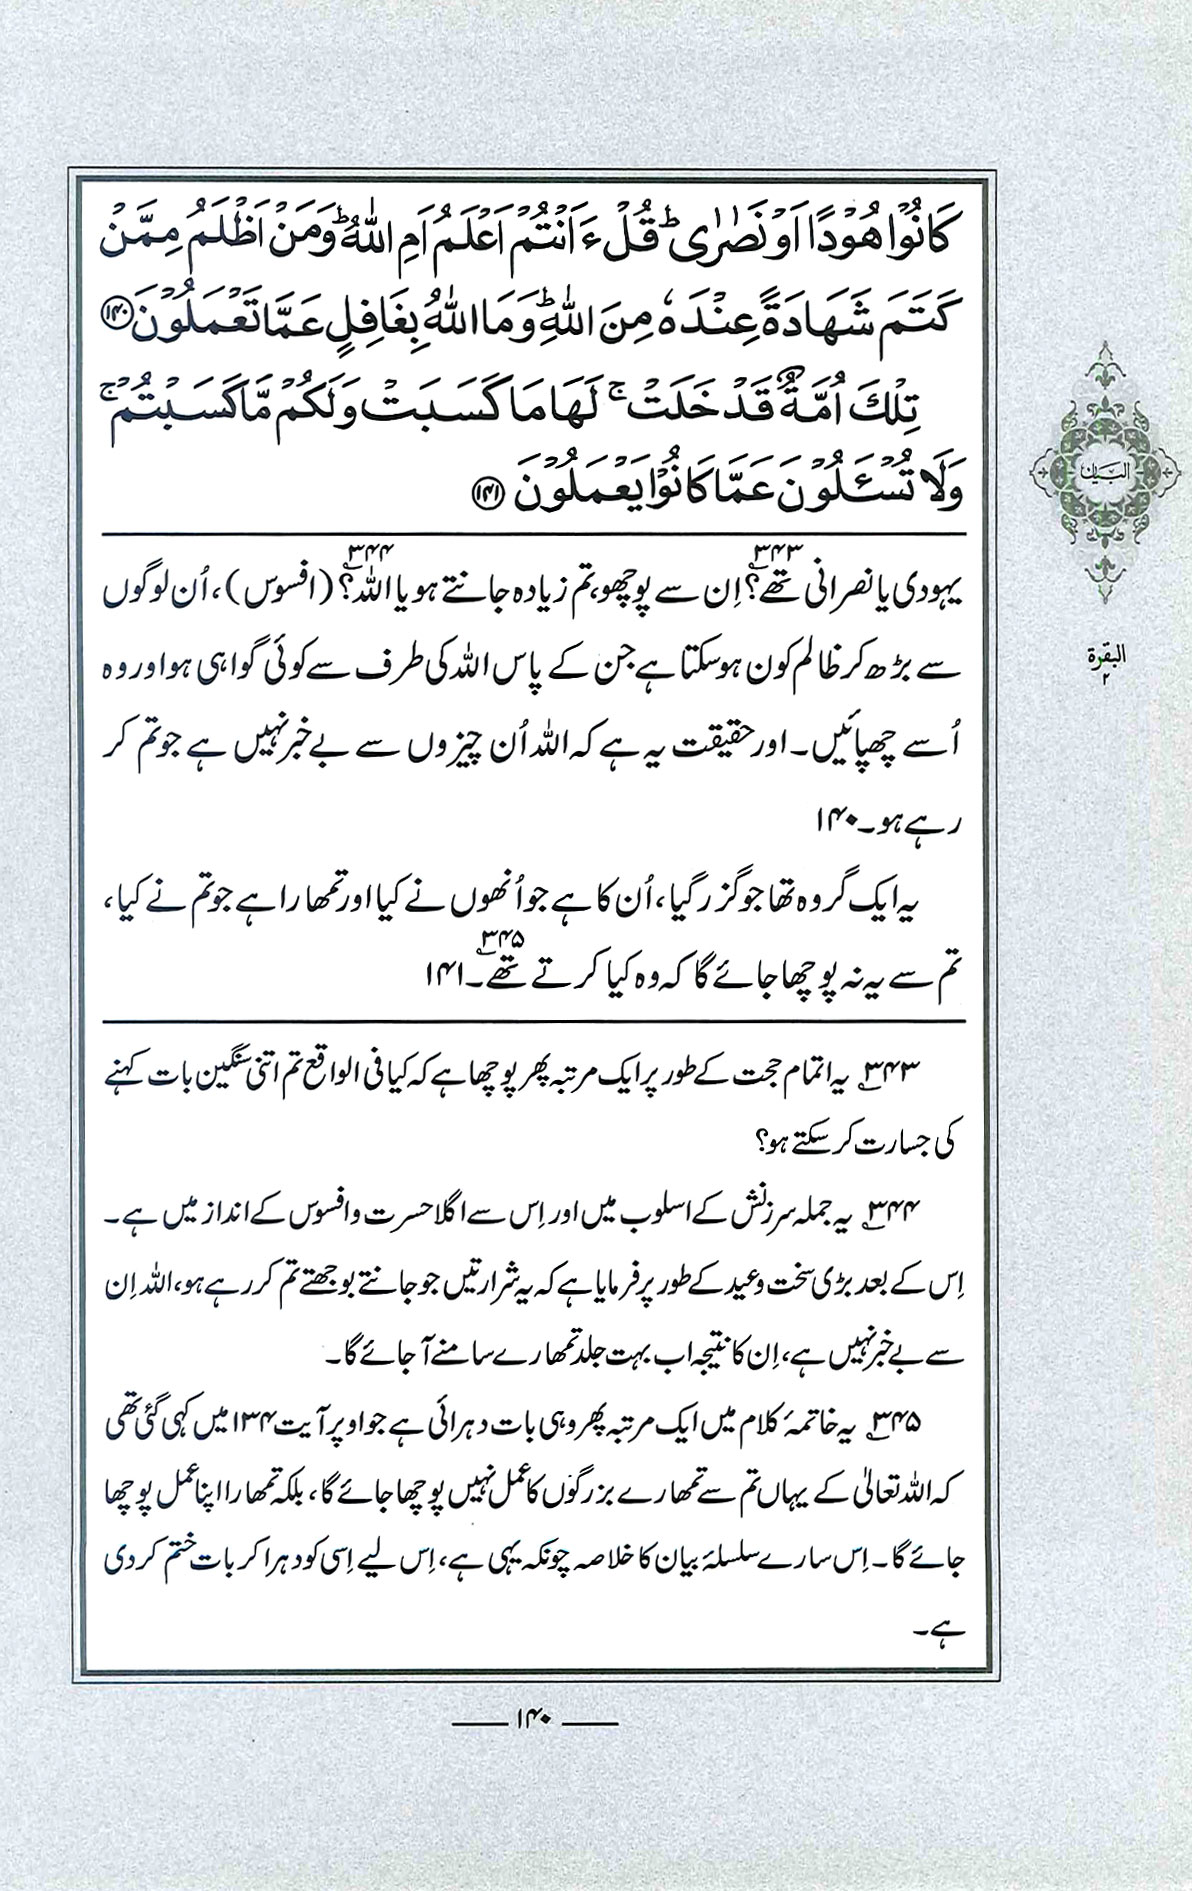 كَانُوْا هُوْدًا اَوْ نَصٰرٰى ؕ قُلْ ءَاَنْتُمْ اَعْلَمُ اَمِ اللّٰهُ ؕ وَمَنْ اَظْلَمُ مِمَّنْ
كَتَمَ شَهَادَةً عِنْدَهٗ مِنَ اللّٰهِ ؕ وَمَا اللّٰهُ بِغَافِلٍ عَمَّا تَعْمَلُوْنَ ﴿۱۴۰﴾
تِلْكَ اُمَّةٌ قَدْ خَلَتْ ۚ لَهَا مَا كَسَبَتْ وَلَكُمْ مَّا كَسَبْتُمْ ۚ
وَلَا تُسْـَٔلُوْنَ عَمَّا كَانُوْا يَعْمَلُوْنَ ﴿۱۴۱﴾
یہودی یا نصرانی تھے؟۳۴۳ اِن سے پوچھو، تم زیادہ جانتے ہو یا اللہ؟۳۴۴ (افسوس)، اُن لوگوں
سے بڑھ کر ظالم کون ہوسکتا ہے جن کے پاس اللہ کی طرف سے کوئی گواہی ہو اور وہ
اُسے چھپائیں۔ اور حقیقت یہ ہے کہ اللہ اُن چیزوں سے بے خبر نہیں ہے جو تم کر
رہے ہو۔ ۱۴۰
یہ ایک گروہ تھا جو گزر گیا، اُن کا ہے جو اُنھوں نے کیا اور تمھارا ہے جو تم نے کیا،
تم سے یہ نہ پوچھا جائے گا کہ وہ کیا کرتے تھے۔۳۴۵ ۱۴۱
۳۴۳ یہ اتمام حجت کے طور پر ایک مرتبہ پھر پوچھا ہے کہ کیا فی الواقع تم اتنی سنگین بات کہنے
کی جسارت کر سکتے ہو؟
۳۴۴ یہ جملہ سرزنش کے اسلوب میں اور اِس سے اگلا حسرت و افسوس کے انداز میں ہے۔
اِس کے بعد بڑی سخت وعید کے طور پر فرمایا ہے کہ یہ شرارتیں جو جانتے بوجھتے تم کر رہے ہو، اللہ اِن
سے بے خبر نہیں ہے، اِن کا نتیجہ اب بہت جلد تمھارے سامنے آ جائے گا۔
۳۴۵ یہ خاتمۂ کلام میں ایک مرتبہ پھر وہی بات دہرائی ہے جو اوپر آیت ۱۳۴ میں کہی گئی تھی
کہ اللہ تعالیٰ کے یہاں تم سے تمھارے بزرگوں کا عمل نہیں پوچھا جائے گا، بلکہ تمھارا اپنا عمل پوچھا
جائے گا۔ اِس سارے سلسلۂ بیان کا خلاصہ چونکہ یہی ہے، اِس لیے اِسی کو دہرا کر بات ختم کر دی
ہے۔
البیان
البقرة
۲
۱۴۰